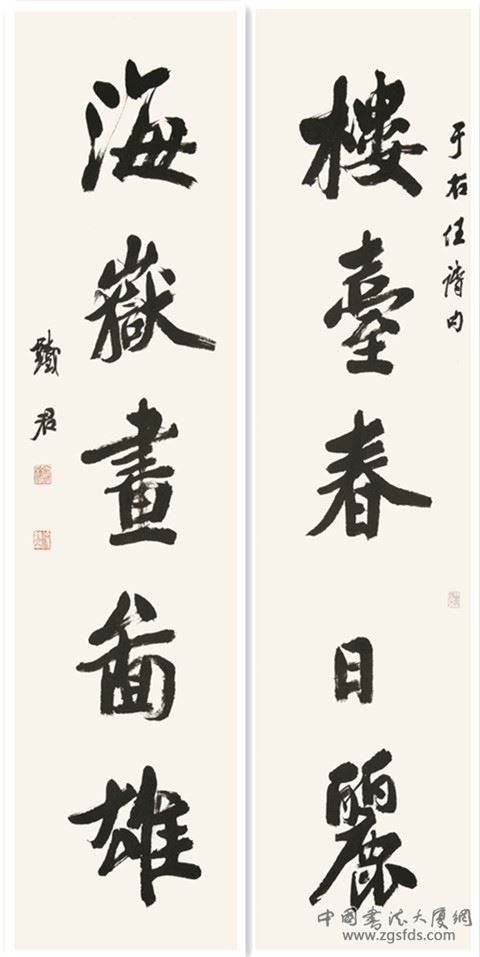 于右任詩句
樓臺春日麗
海嶽畫啚雄
鐵君
中國書法大廈網
www.zgsfds.com